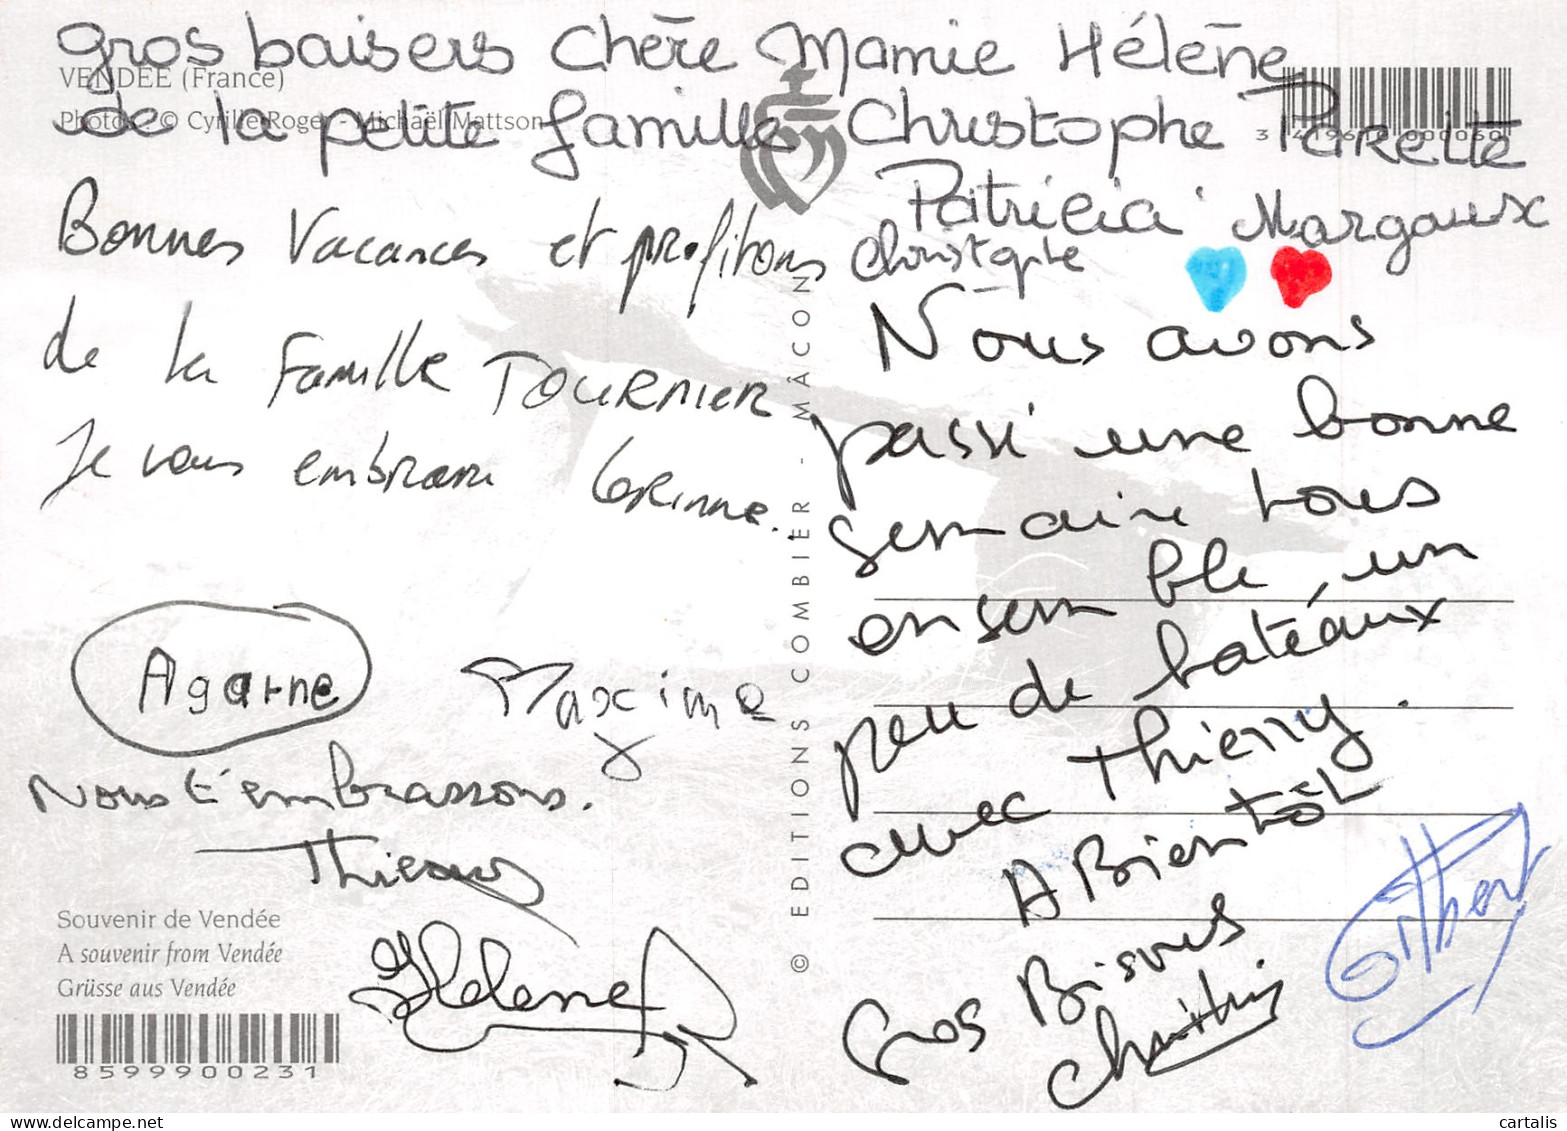 gros baisers Chère Mamie Hélène
de la petite famille Christophe
Patricia Margaux
Christophe
VENDÉE (France)
Photos © Cyrille Roger - Michaël Mattson
Bonnes Vacances et profitons
de la Famille TOURNIER
Je vous embrasse Corinne.
Nous avons
passé une bonne
semaine tous
ensemble, un
peu de bateaux
avec Thierry.
A Bientôt
Gros Bisous
Maxime
Nous t'embrassons.
Thierry
Helene
Gilbert
Souvenir de Vendée
A souvenir from Vendée
Grüsse aus Vendée
8599900231
© EDITIONS COMBIER - MÂCON
cartalis